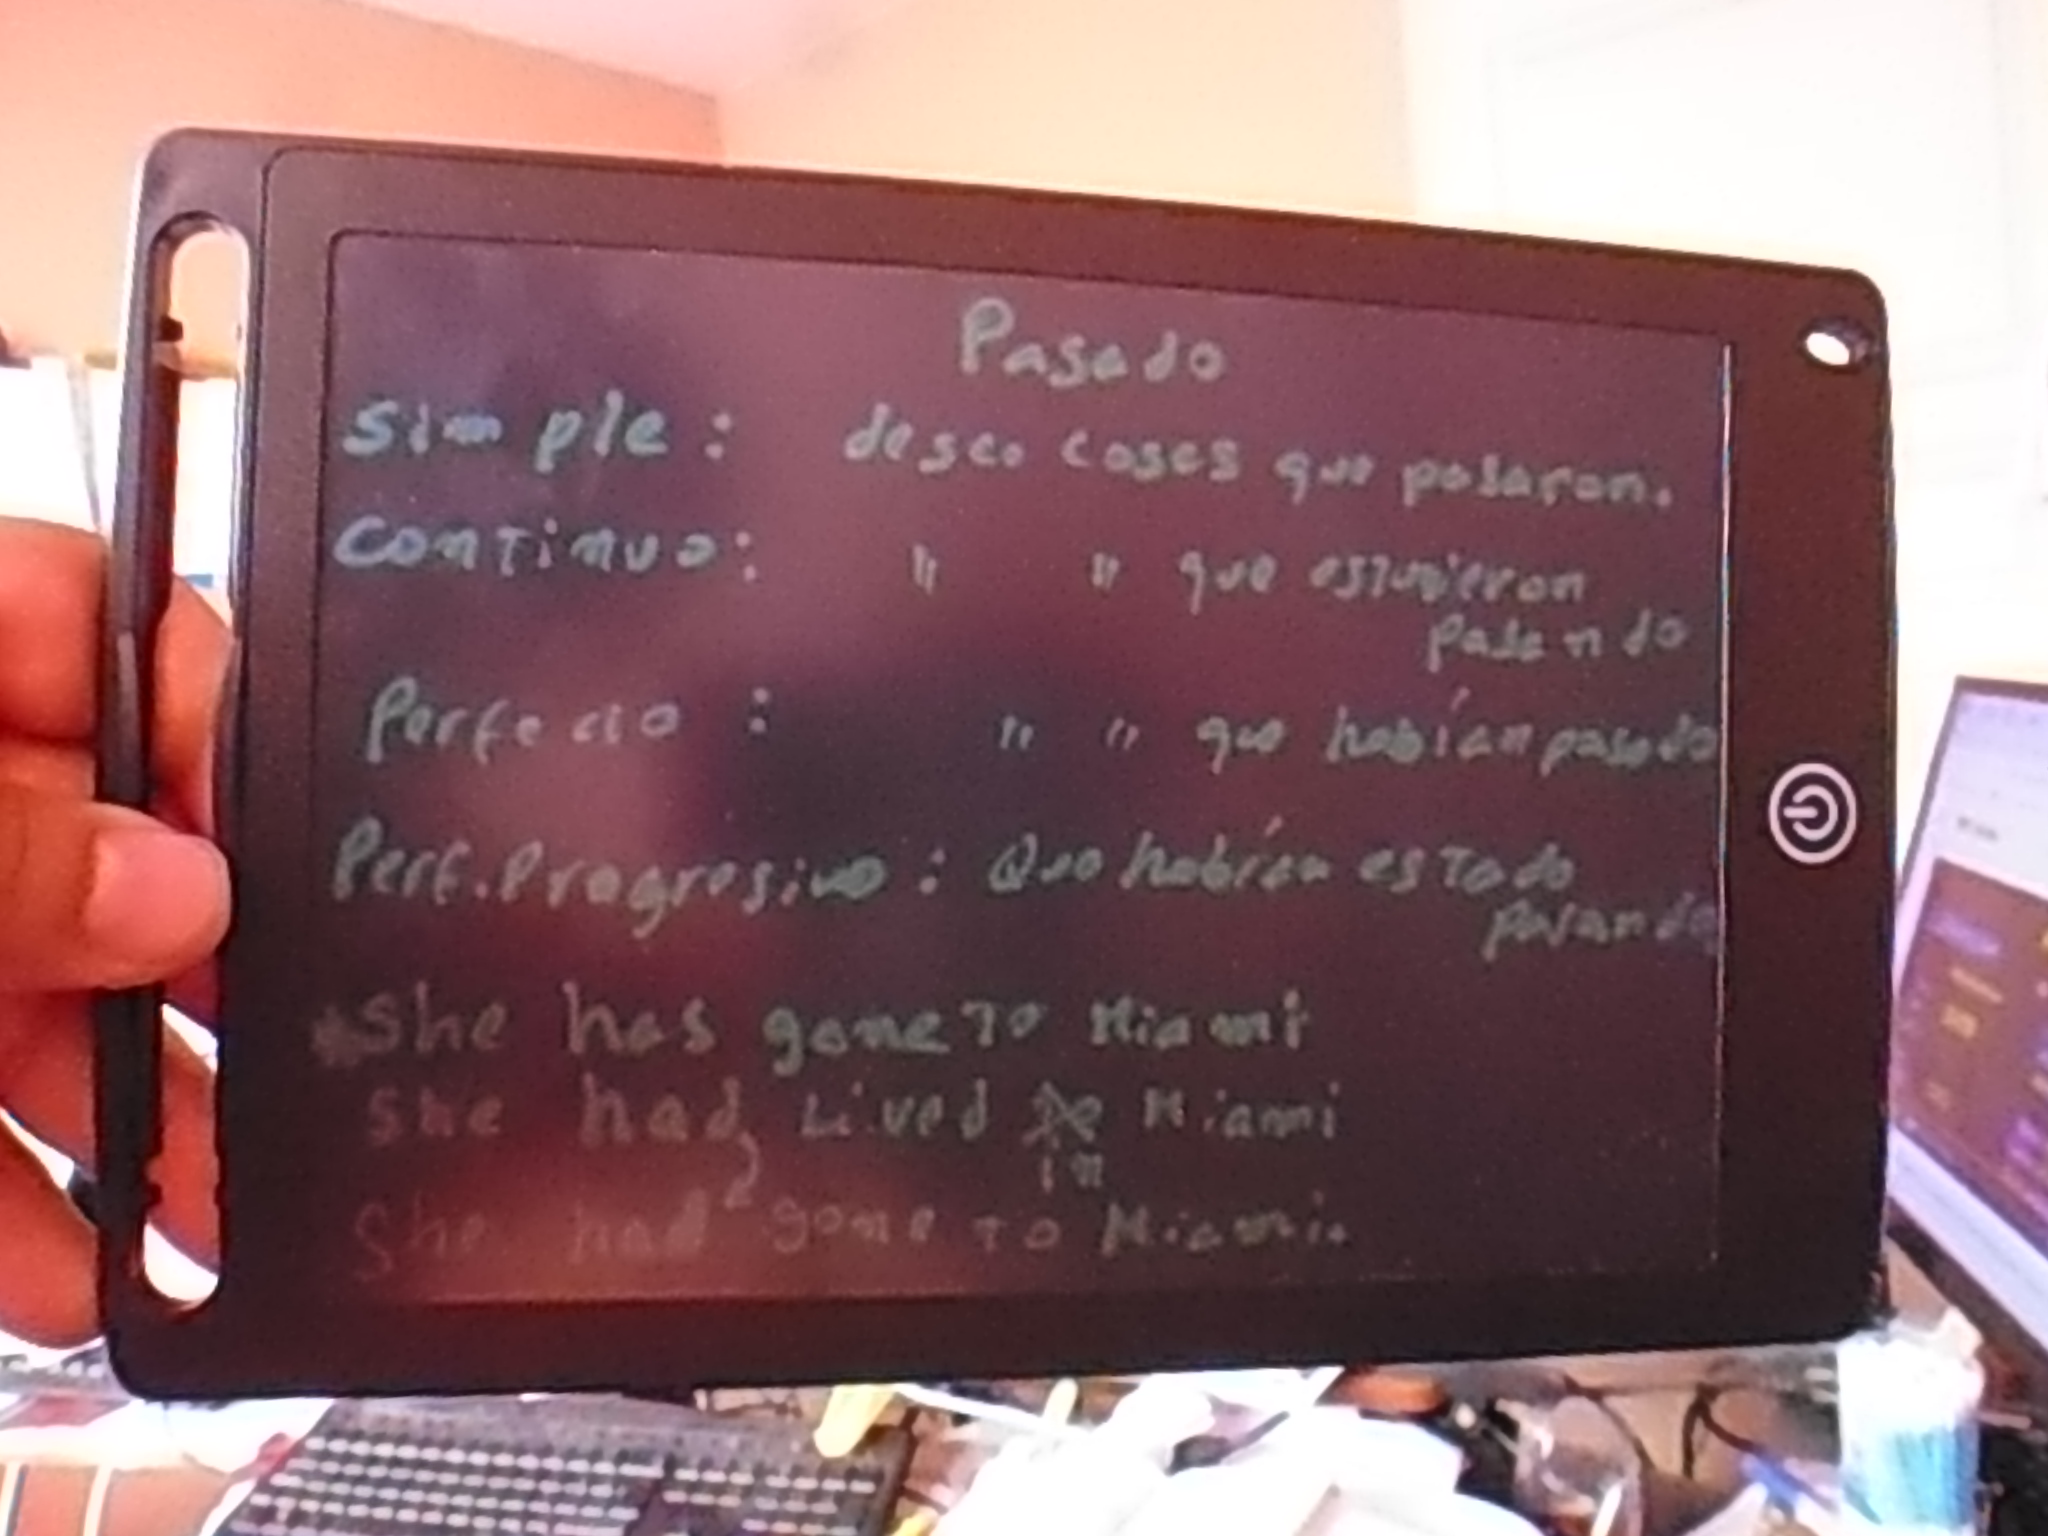 Pasado
Simple: desc. cosas que pasaron.
Continuo: " " que estuvieron
pasando
Perfecto : " " que habían pasado
Perf. Progresivo: Que habían estado
pasando
She has gone to Miami
She had Lived Miami
in
She had gone to Miami.